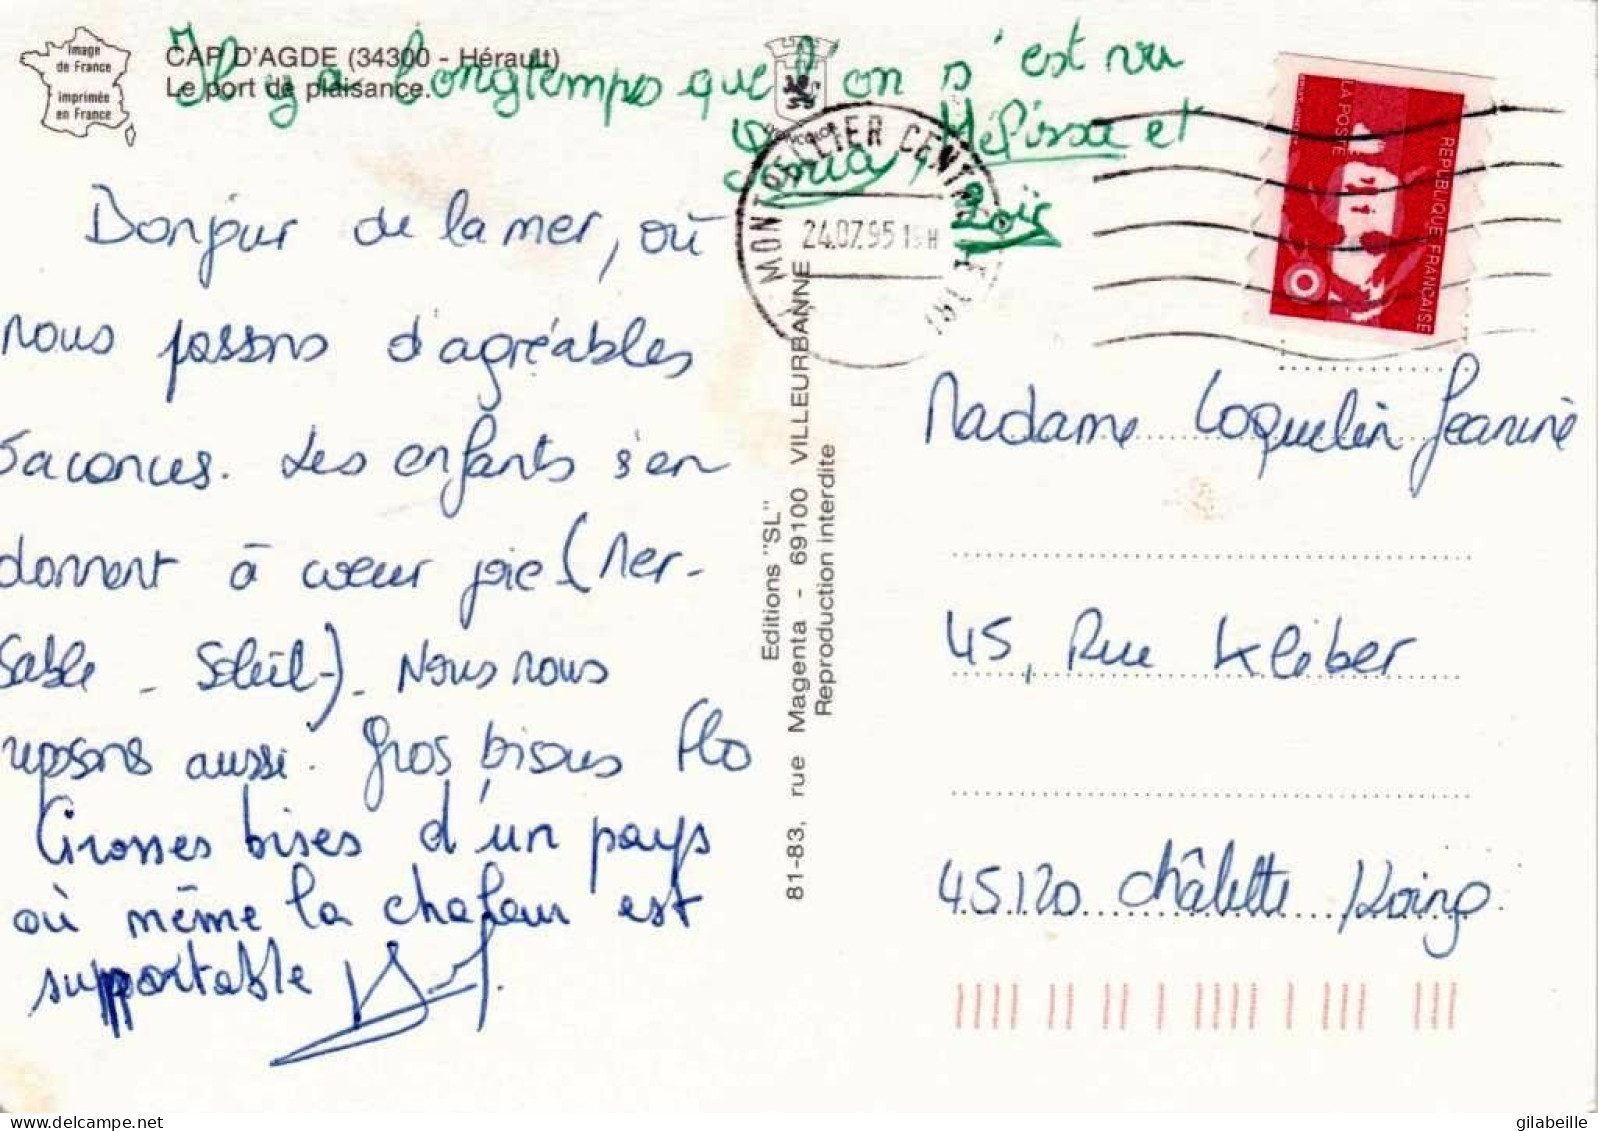 Image
de France
imprimée
en France
CAP D'AGDE (34300 - Hérault)
Le port de plaisance.
Il y a longtemps que l'on s'est vu
Mélissa et
Loïs
Bonjour de la mer, où
nous passons d'agréables
vacances. Les enfants s'en
donnent à coeur joie (Mer-
Sable - Soleil-). Nous nous
reposons aussi. Gros bisous Flo
Grosses bises d'un pays
où même la chaleur est
supportable
MONTPELLIER CENTRE
24.07.95 19H
HERAULT
LA POSTE
REPUBLIQUE FRANCAISE
Editions "SL"
81-83, rue Magenta - 69100 VILLEURBANNE
Reproduction interdite
Madame Coquelin Jeanine
45, Rue Kléber
45120 Châlette /Loing
gilabeille